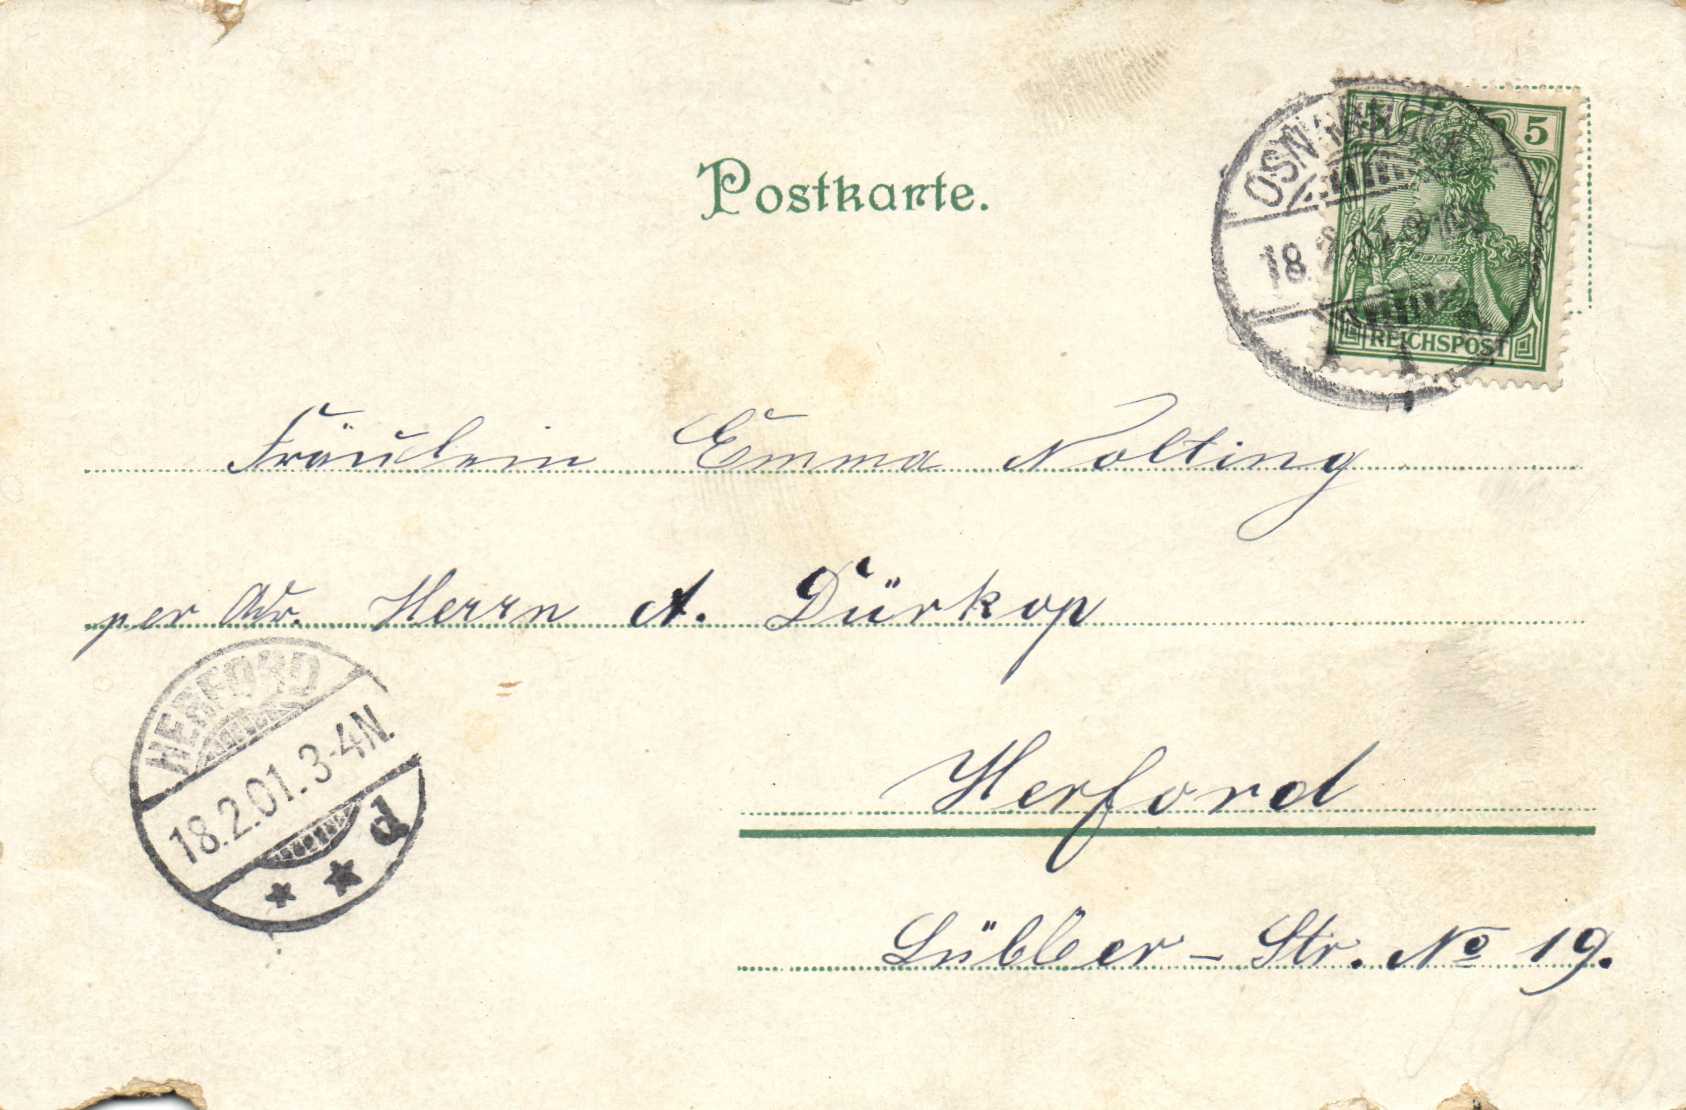 Postkarte.
OSNABRÜCK
5
18.2.01.
REICHSPOST
1
Fräulein Emma Nolting
per Adr. Herrn A. Dürkop
HERFORD
18.2.01.3-4N.
d
Herford
Lübber-Str. No 19.